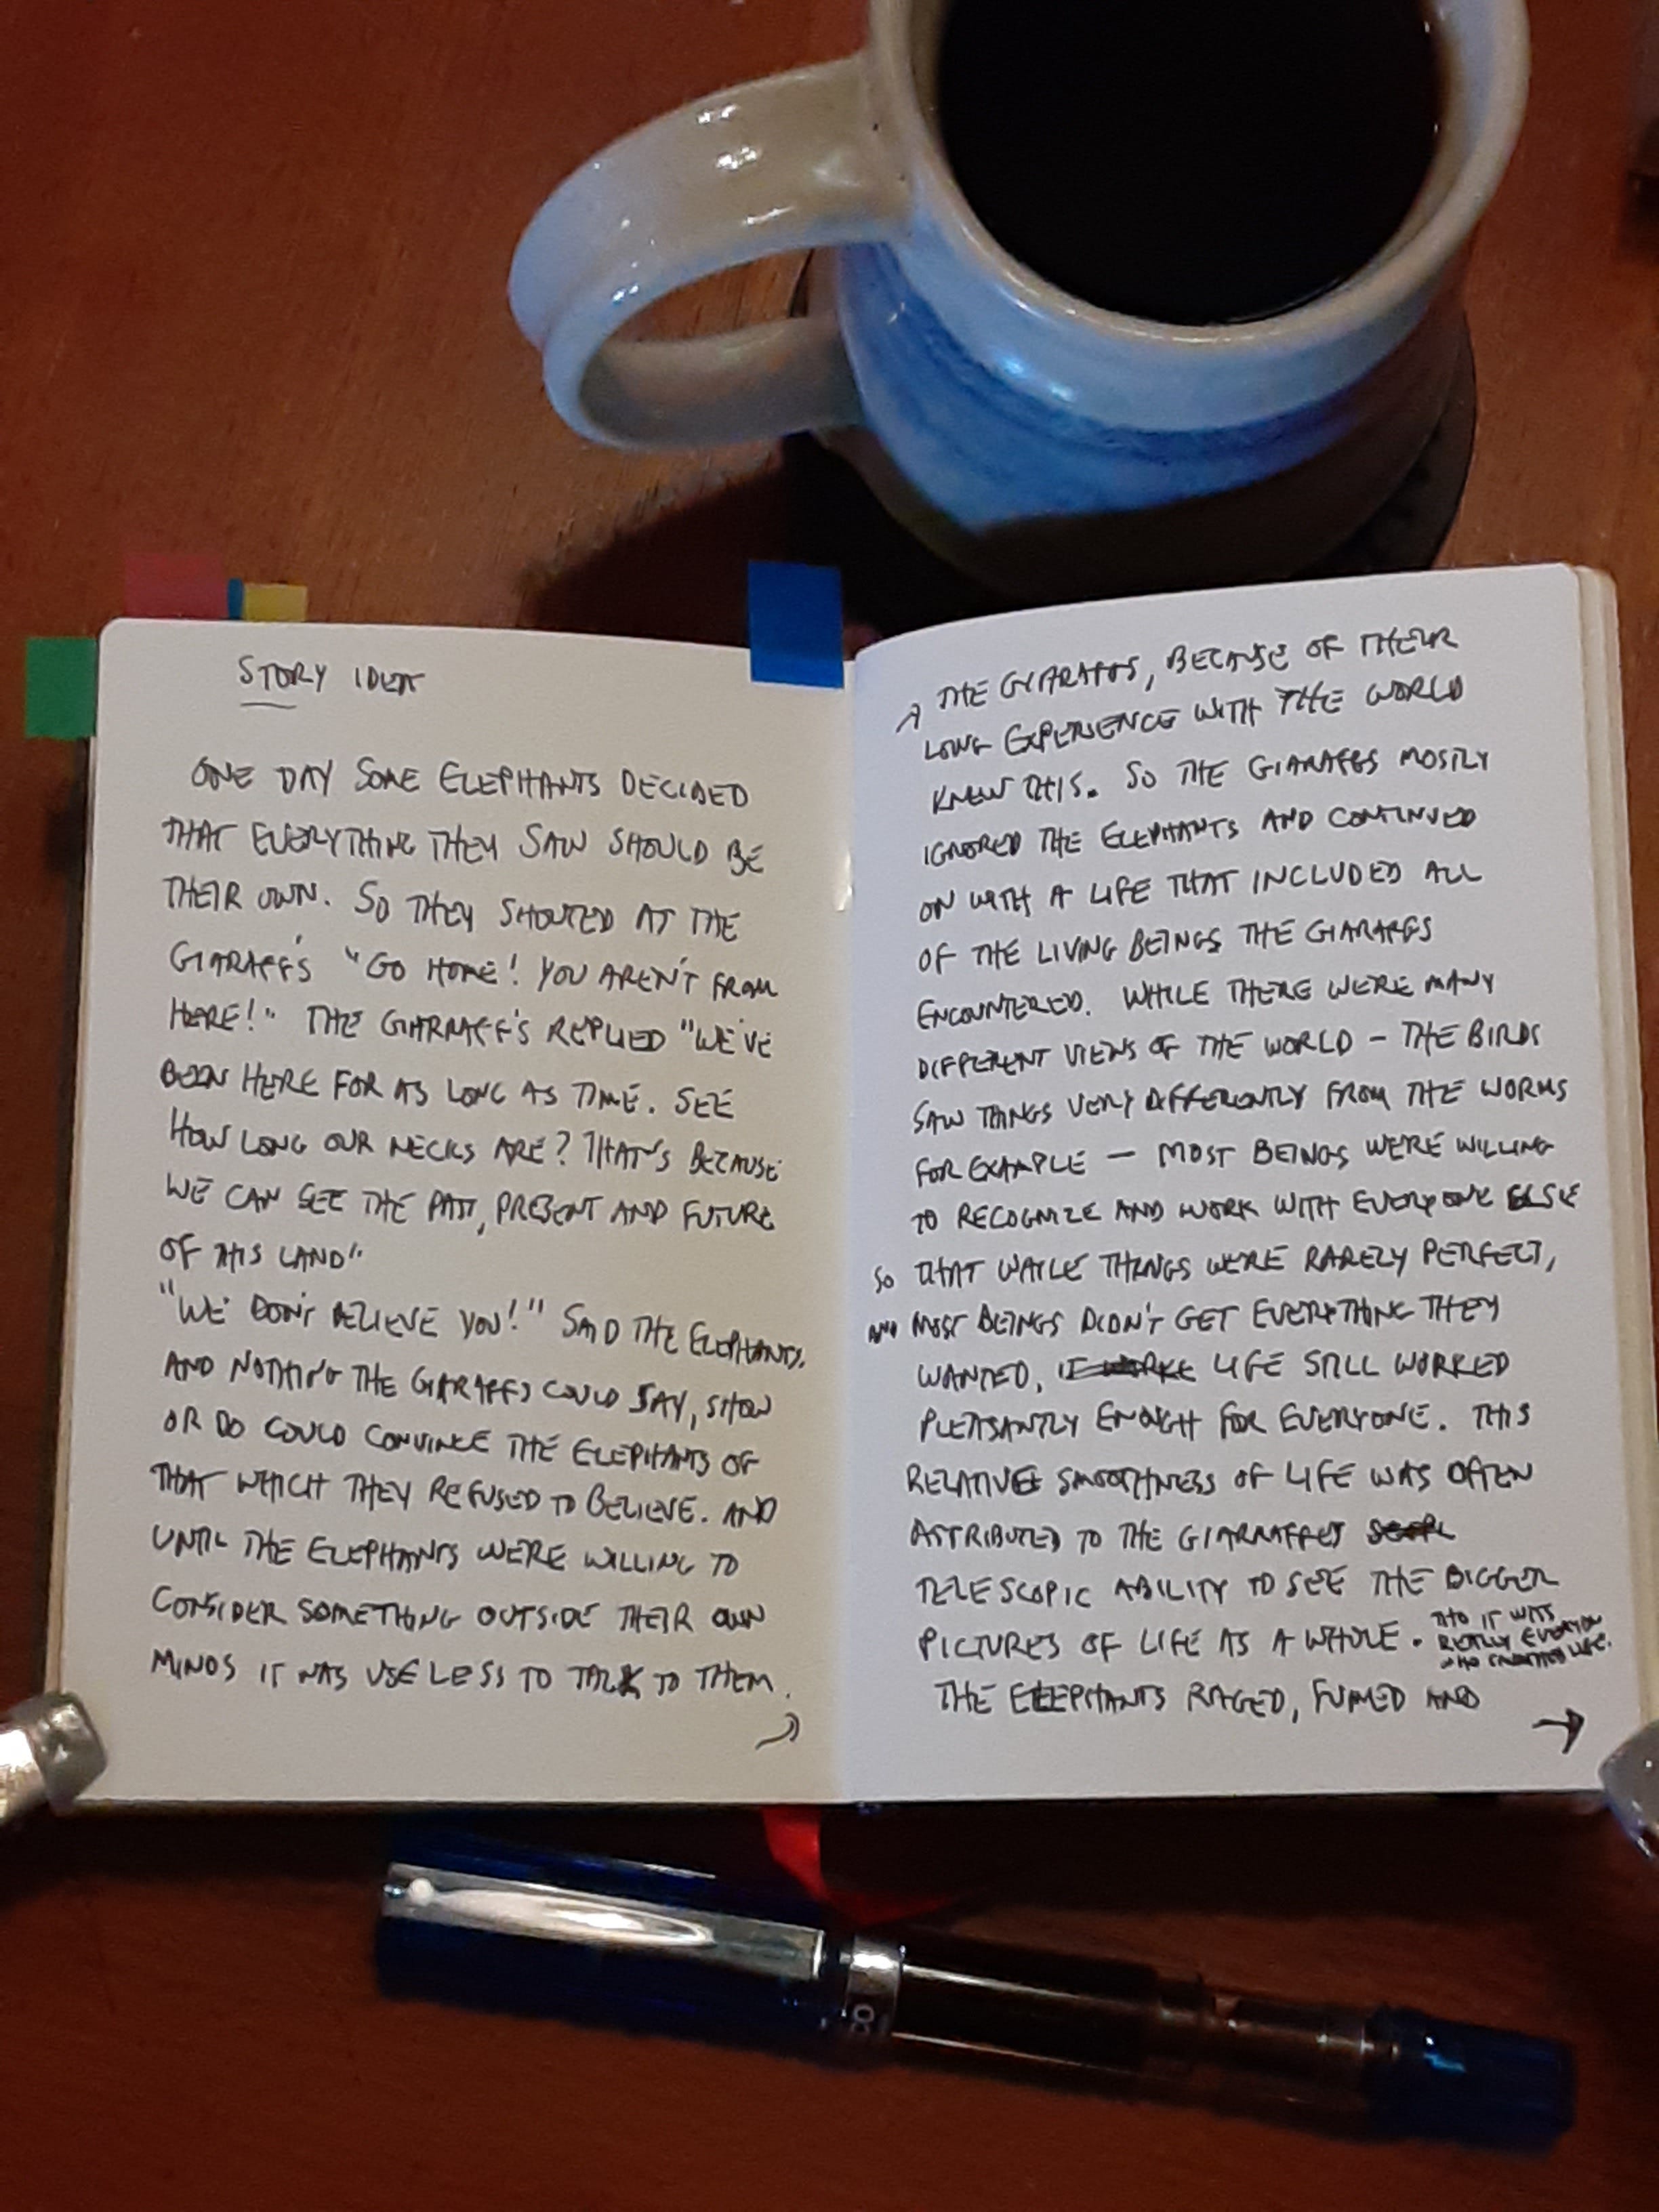 STORY IDEA
ONE DAY SOME ELEPHANTS DECIDED
THAT EVERYTHING THEY SAW SHOULD BE
THEIR OWN. SO THEY SHOUTED AT THE
GIARAFF'S "GO HOME! YOU AREN'T FROM
HERE!" THE GIARRAFF'S REPLIED "WE'VE
BEEN HERE FOR AS LONG AS TIME. SEE
HOW LONG OUR NECKS ARE? THAT'S BECAUSE
WE CAN SEE THE PAST, PRESENT AND FUTURE
OF THIS LAND"
"WE DON'T BELIEVE YOU!" SAID THE ELEPHANTS.
AND NOTHING THE GIARAFFS COULD SAY, SHOW
OR DO COULD CONVINCE THE ELEPHANTS OF
THAT WHICH THEY REFUSED TO BELIEVE. AND
UNTIL THE ELEPHANTS WERE WILLING TO
CONSIDER SOMETHING OUTSIDE THEIR OWN
MINDS IT WAS USELESS TO TALK TO THEM.
THE GIARAFFS, BECAUSE OF THEIR
LONG EXPERIENCE WITH THE WORLD
KNEW THIS. SO THE GIARAFFS MOSTLY
IGNORED THE ELEPHANTS AND CONTINUED
ON WITH A LIFE THAT INCLUDED ALL
OF THE LIVING BEINGS THE GIARAFFS
ENCOUNTERED. WHILE THERE WERE MANY
DIFFERENT VIEWS OF THE WORLD – THE BIRDS
SAW THINGS VERY DIFFERENTLY FROM THE WORMS
FOR EXAMPLE – MOST BEINGS WERE WILLING
TO RECOGNIZE AND WORK WITH EVERYONE ELSE
SO THAT WHILE THINGS WERE RARELY PERFECT,
AND MOST BEINGS DIDN'T GET EVERYTHING THEY
WANTED, LIFE STILL WORKED
PLEASANTLY ENOUGH FOR EVERYONE. THIS
RELATIVE SMOOTHNESS OF LIFE WAS OFTEN
ATTRIBUTED TO THE GIARRAFFES
TELESCOPIC ABILITY TO SEE THE BIGGER
PICTURES OF LIFE AS A WHOLE. THO IT WAS
REALLY EVERYONE
WHO CREATED LIFE.
THE ELEPHANTS RAGED, FUMED AND
CO